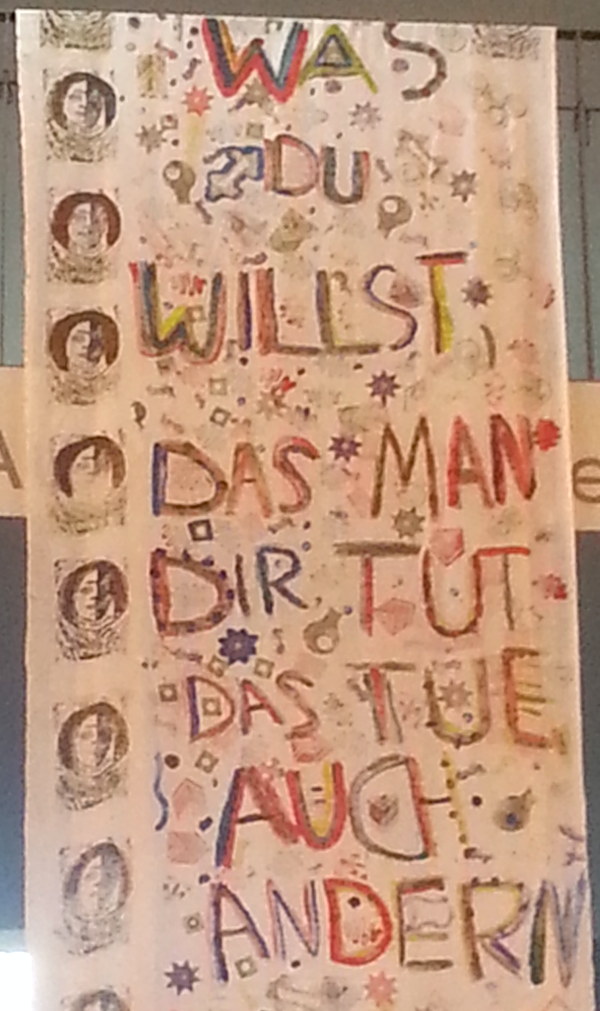 WAS
DU
WILLST,
DAS MAN
DIR TUT
DAS TUE
AUCH
ANDERN